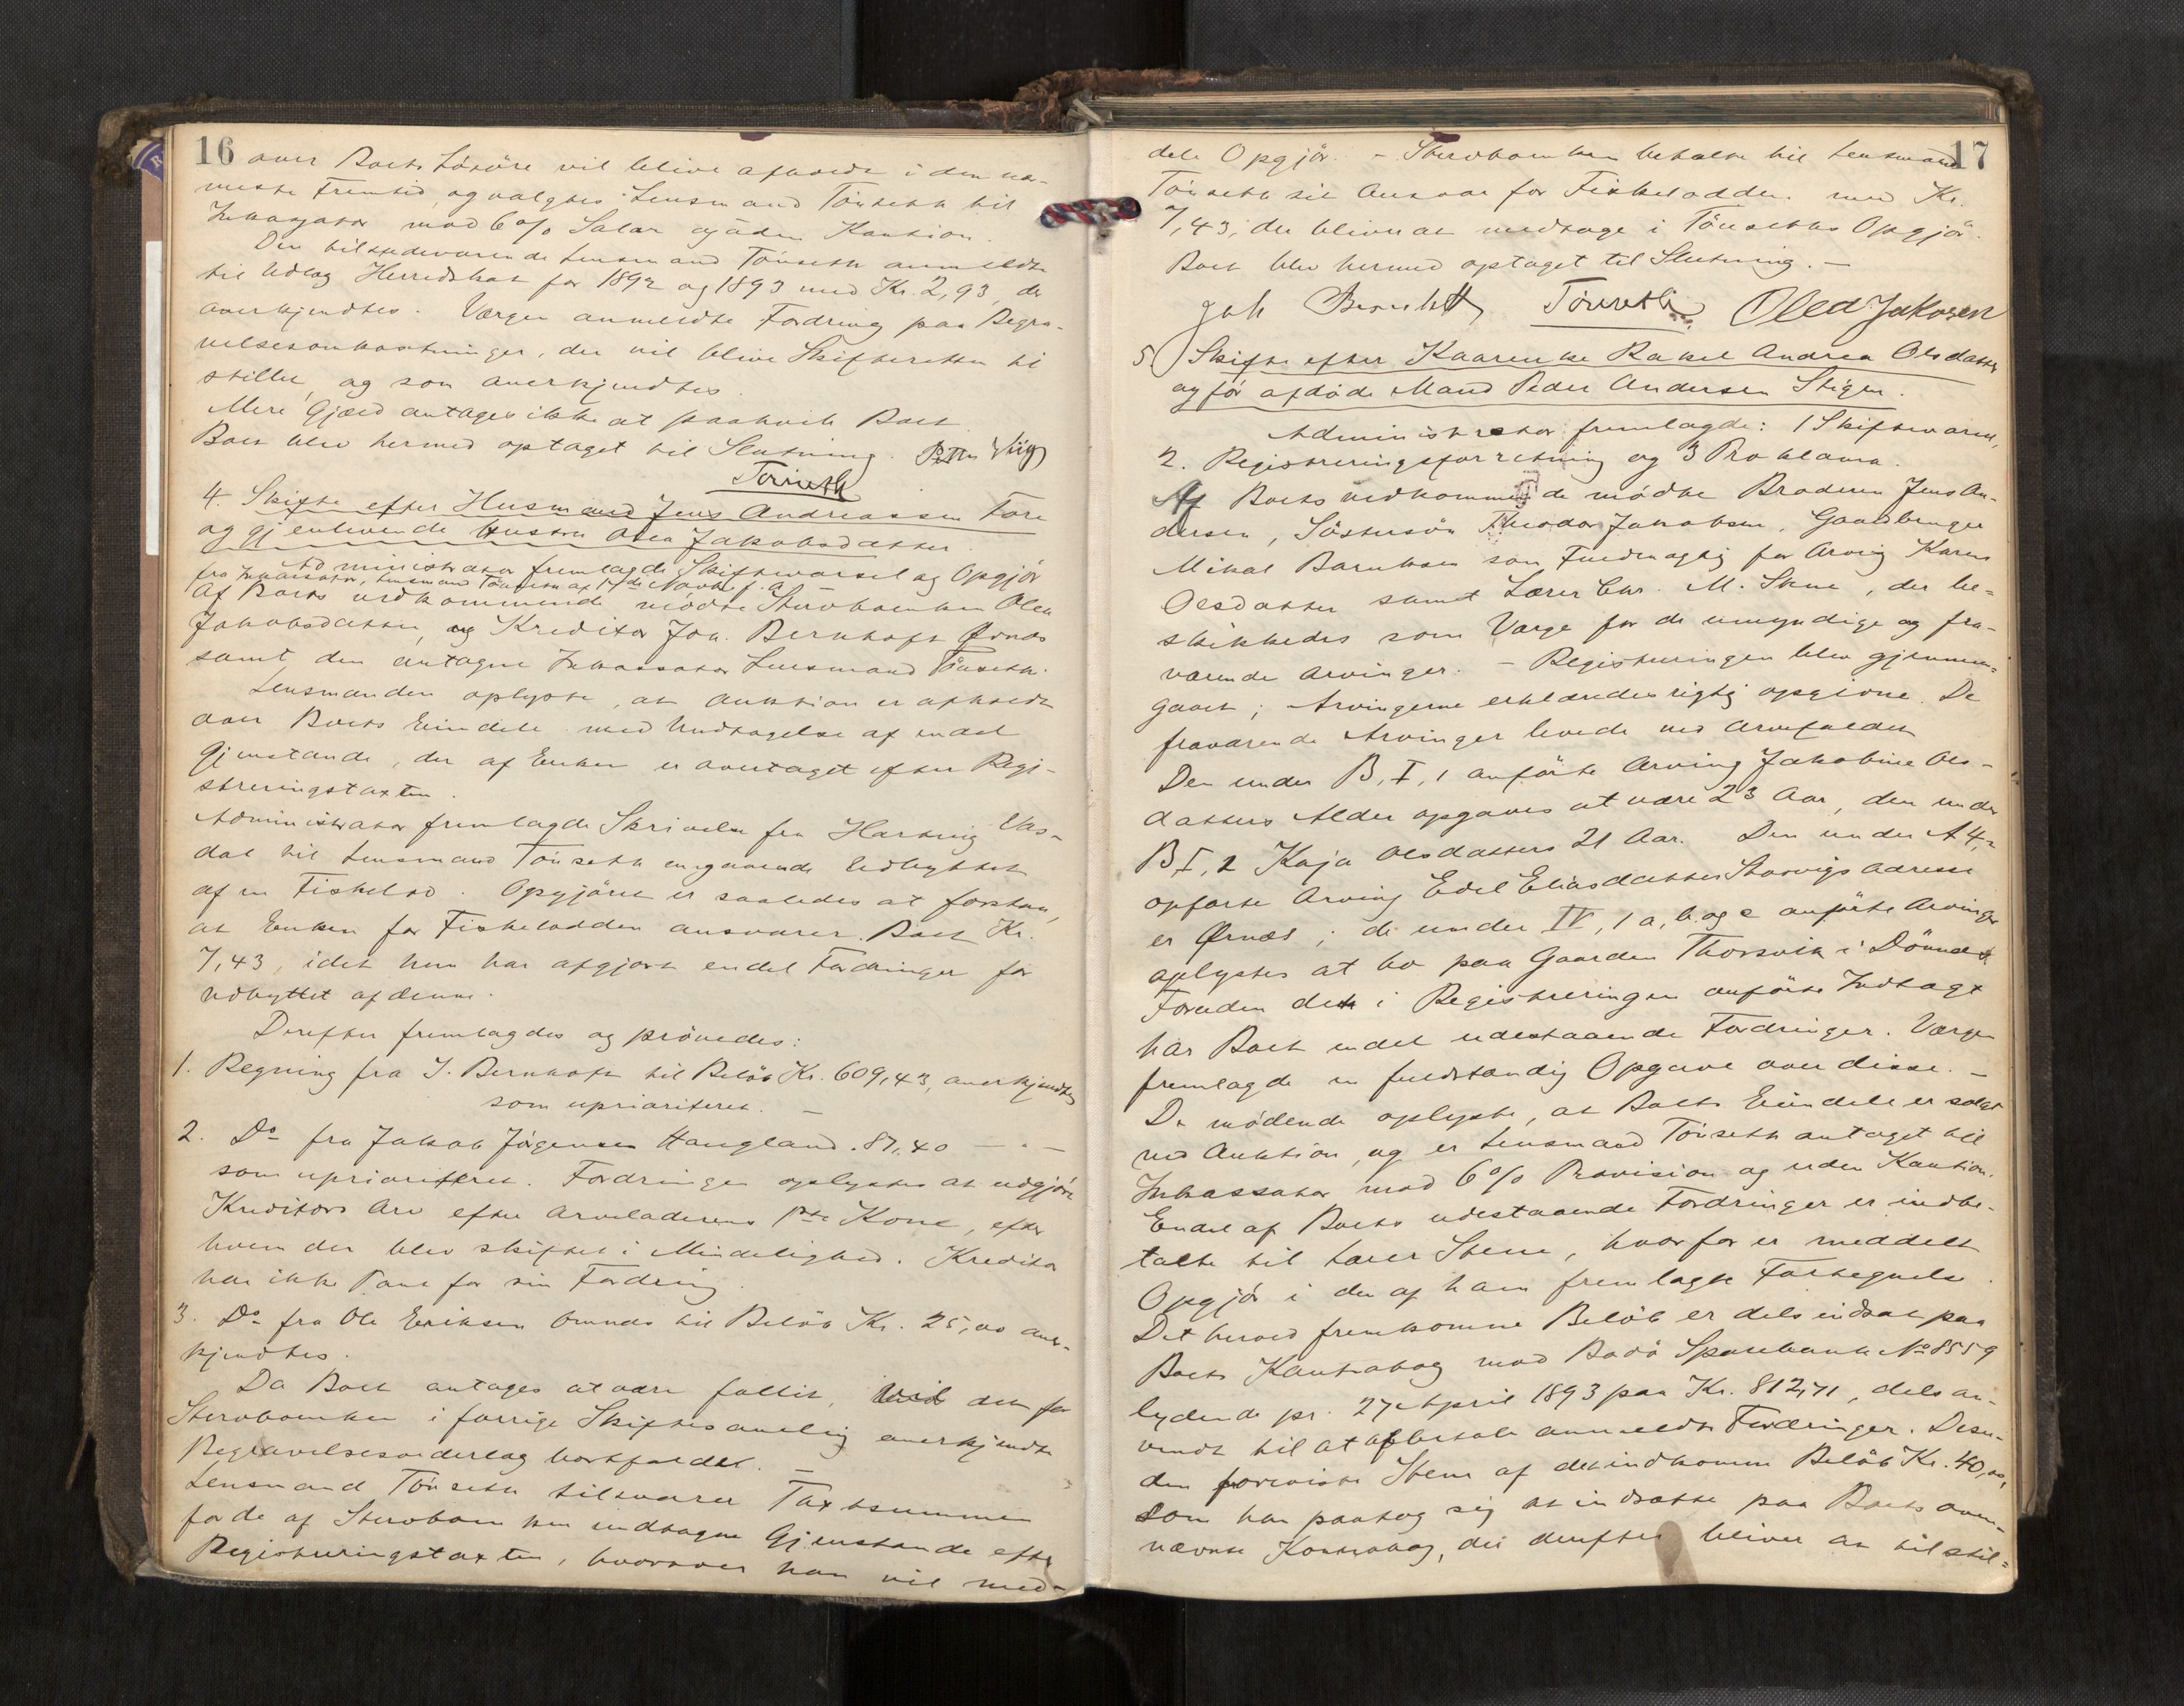 16
over Boets Løsøre vil blive afholdt i den næ-
meste Fremtid, og valgtes Lensmand Tönseth til
Inkassator mod 6% Salær og uden Kaution.
Den tilstedeværende Lensmand Tönseth anmeldte
til Udlæg Herredskat for 1892 og 1893 med Kr. 2,93, der
anerkjendtes. Værgen anmeldte Fordring paa Begra-
velsesomkostninger, der vil blive Skifteretten til
stillet, og som anerkjendtes.
Mere Gjæld antages ikke at paahvile Boet.
Boet blev hermed optaget til Slutning.
Tönseth
4. Skifte efter Husmand Jens Andreassen Fore
og gjenlevende Hustru Olea Jakobsdatter.
Administrator fremlagde Skiftevarsel og Opgjör
fra Inkassator, Lensmand Tönseth af 17de Novbr. f. A.
Af Boets vedkommende mödte Stervboenken Olea
Jakobsdatter, og Kreditor Joh. Bernhoft Ørnes
samt den antagne Inkassator Lensmand Tönseth.
Lensmanden oplyste, at Auktion er afholdt
over Boets Eiendele med Undtagelse af endel
Gjenstande, der af Enken er overtaget efter Regi-
streringstaxten.
Administrator fremlagde Skrivelse fra Hartvig Vas-
dal til Lensmand Tönseth angaaende Udbyttet
af en Fiskelod. Opgjöret er saaledes at forstaa,
at Enken for Fiskelodden ansvarer Boet Kr.
7,43, idet hun har afgjort endel Fordringer for
Udbyttet af denne.
Derefter fremlagdes og prövedes:
1. Regning fra J. Bernhoft til Belöb Kr. 609,43, anerkjendtes
som uprioriteret. —
2. Do fra Jakob Jörgensen Haugland. 87,40 — " —
som uprioriteret. Fordringen oplystes at udgjöre
Kreditors Arv efter Arveladerens 1ste Kone, efter
hvem der blev skiftet i Mindelighed. Kreditor
har ikke Pant for sin Fordring.
3. Do fra Ole Eriksen til Belöb Kr. 25,00 aner-
kjendtes.
Da Boet antages at være fallit, vil den for
Stervboenken i forrige Skiftesamling anerkjendte
Begravelsesvederlag bortfaldet. —
Lensmand Tönseth tilsvarer Taxtsummen
for de af Stervboenken undtagne Gjenstande efter
Registreringstaxten, hvorover han vil med-
17
dele Opgjör. - Stervboenken betalte til Lensmand
Tönseth sit Ansvar for Fiskelodden med Kr.
7,43, der bliver at medtage i Tönseths Opgjör.
Boet blev hermed optaget til Slutning. —
Joh Bernhoft Tönseth Olea Jakosen
5. Skifte efter Kaarenke Rakel Andrea Olsdatter
og för afdöde Mand Peder Andersen Stigen.
Administrator fremlagde: 1 Skiftevarsel,
2. Registreringsforretning og 3 Proklama.
Af Boets vedkommende mödte Broderen Jens An-
dersen, Söstersön Theodor Jakobsen, Gaardbruger
Mikal Baruksen som Fuldmægtig for Arving Karen
Olsdatter samt Lærer Chr. M. Stene, der be-
skikkedes som Værge for de umyndige og fra-
værende Arvinger. - Registreringen blev gjennem-
gaaet; Arvingerne erklæredes rigtig opgivne. De
fraværende Arvinger levede ved Arvefaldet
Den under B, I, 1 anförte Arving Jakobine Ols-
datters Alder opgaves at være 23 Aar, den under
B I, 2 Kaja Olsdatters 21 Aar. Den under A 4, 2
opførte Arving Edel Eliasdatter Storvigs Adresse
er Ørnes; de under IV, 1 a, b og c anförte Arvinger
oplystes at bo paa Gaarden Thorsvik i Dönnes.
Foruden det i Registreringen anförte Indtægt
har Boet endel udestaaende Fordringer. Værgen
fremlagde en fuldstændig Opgave over disse. —
De mödende oplyste, at Boets Eiendele er solgt
ved Auktion, og er Lensmand Tönseth antaget til
Inkassator mod 6% Provision og uden Kaution.
Endel af Boets udestaaende Fordringer er indbe-
talte til Lærer Stene, hvorfor er meddelt
Opgjör i den af ham fremlagte Fortegnelse.
Det herved fremkomne Belöb er dels indsat paa
Boets Kontrabog med Bodö Sparebank No 8559
lydende pr. 27 April 1893 paa Kr. 812,71, dels an-
vendt til at afbetale anmeldte Fordringer. Desu-
den foreviste Stene af det indkomne Belöb Kr. 40,00,
som han paatog sig at indsætte paa Boets oven-
nævnte Kontrabog, der derefter bliver at tilstil-